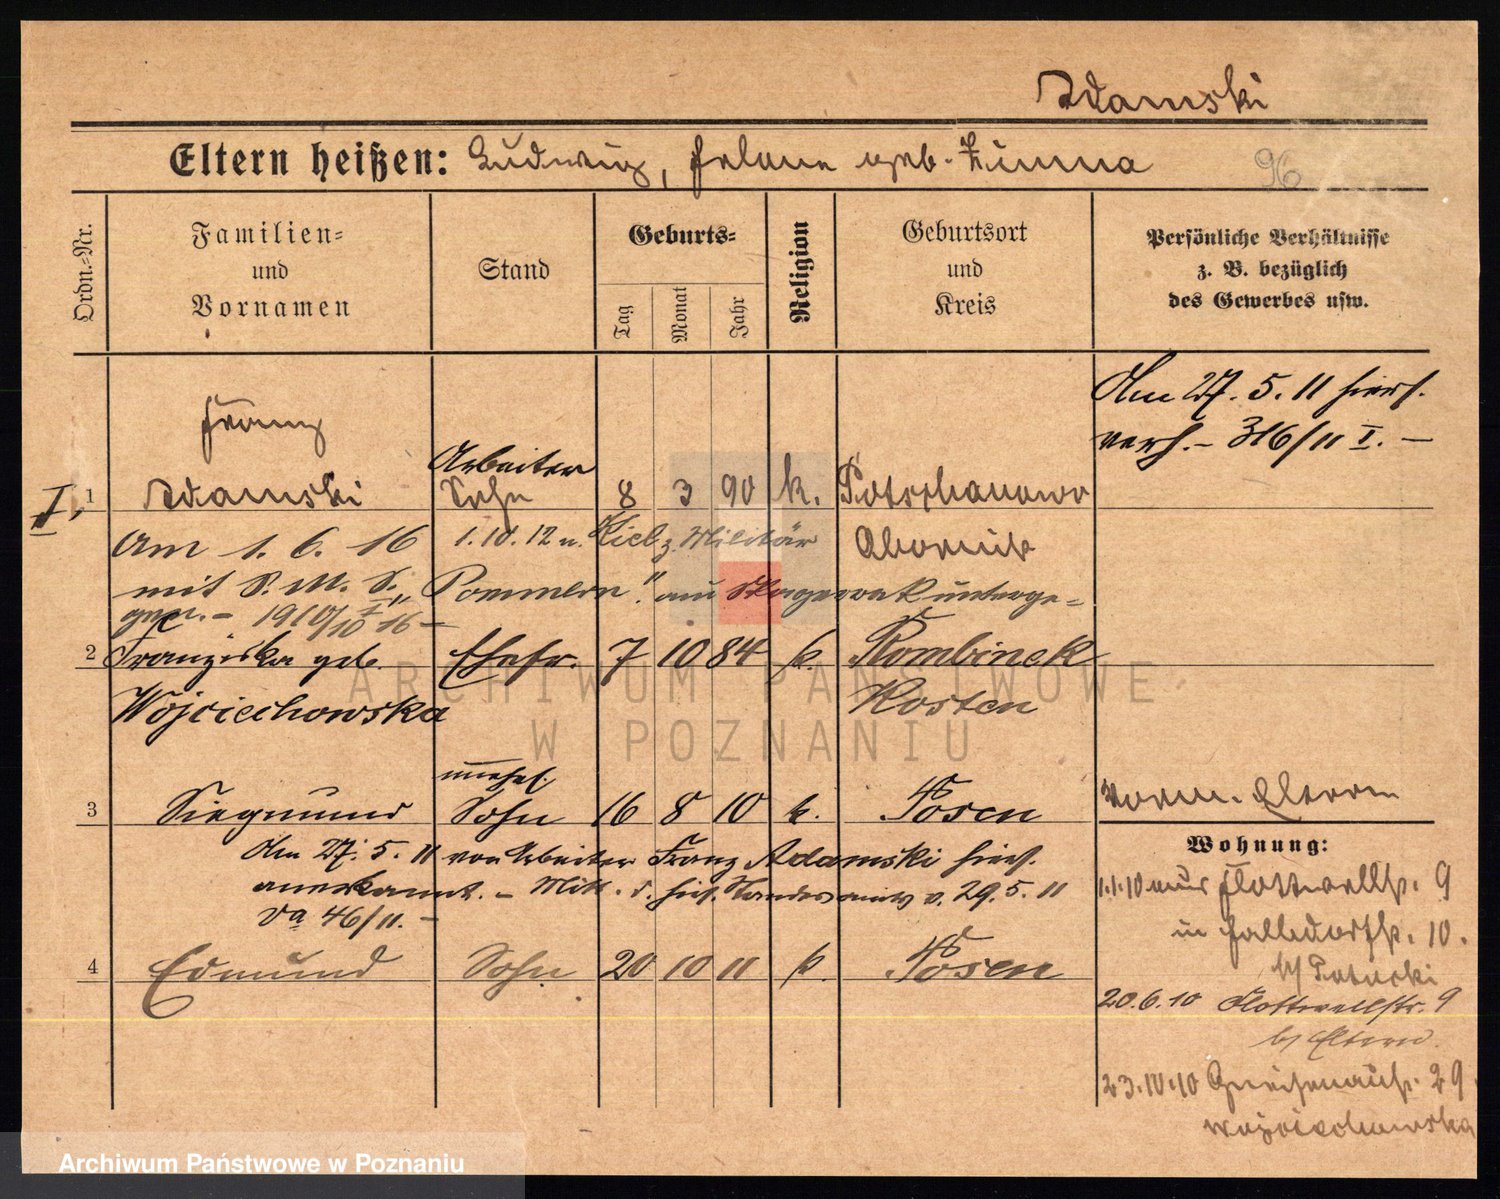 Adamski
Eltern heißen: Ludwig, Helene geb. Zimna
96
Ordn.-Nr.
Familien- und Vornamen
Stand
Geburts-
Tag
Monat
Jahr
Religion
Geburtsort und Kreis
Persönliche Verhältnisse z. B. bezüglich des Gewerbes usw.
Am 27. 5. 11 hier
verh. - 316/11 I. -
Franz
Arbeiter
I, 1 Adamski Sohn 8 3 90 k. Potschanowo
Am 1. 6. 16 1.10.12 n. Kiel z. Militär Obornik
mit S. M. S. "Pommern" am Skagerrak unterge-
2 Franziska geb. Ehefr. 7 10 84 k. Rombinek
Wojciechowska Kosten
unehel.
3 Siegmund Sohn 16 8 10 k. Posen
Am 27. 5. 11 von Arbeiter Franz Adamski hier
anerkannt. - Mitt. d. Standesamts v. 29. 5. 11
Va 46/11. -
4 Edmund Sohn 20 10 11 k. Posen
vorm. Eltern
Wohnung:
1.1.10 aus Flottwellstr. 9
in 10.
b/ Potocki
20.6.10 Flottwellstr. 9
b/ Eltern
23.10.10 Gneisenaustr. 29
Wojciechowska
ARCHIWUM PAŃSTWOWE
W POZNANIU
Archiwum Państwowe w Poznaniu